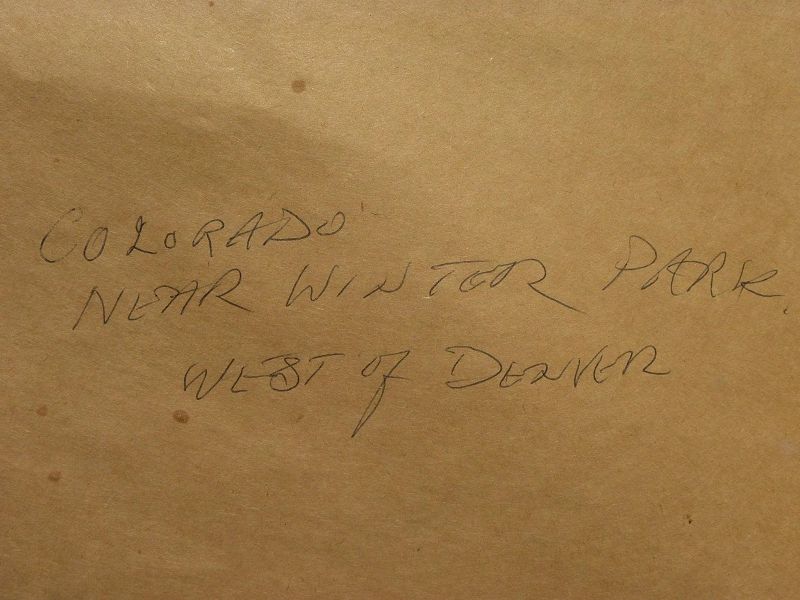 COLORADO
NEAR WINTER PARK.
WEST of DENVER